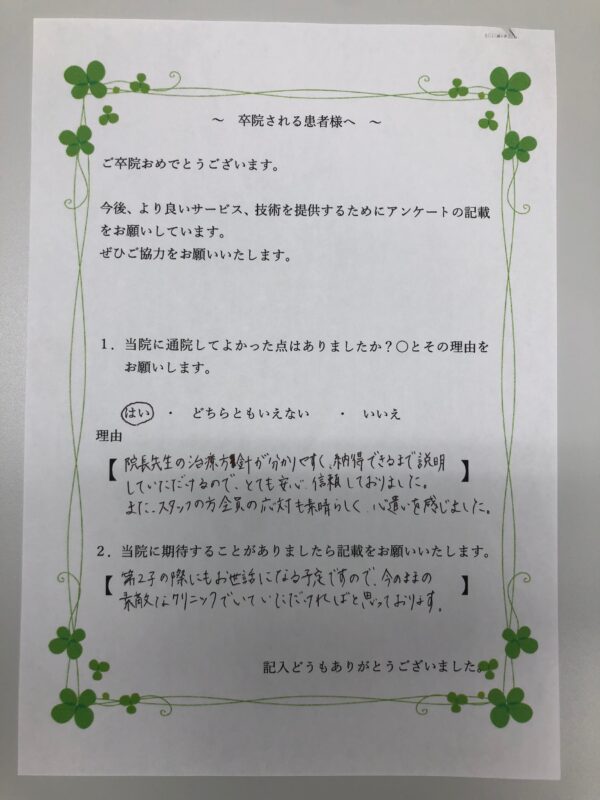 ～ 卒院される患者様へ ～
ご卒院おめでとうございます。
今後、より良いサービス、技術を提供するためにアンケートの記載
をお願いしています。
ぜひご協力をお願いいたします。
1．当院に通院してよかった点はありましたか？〇とその理由を
お願いします。
はい ・ どちらともいえない ・ いいえ
理由
【 院長先生の治療方針が分かりやすく、納得できるまで説明 】
していただけるので、とても安心、信頼しておりました。
また、スタッフの方全員の応対も素晴らしく、心遣いを感じました。
2．当院に期待することがありましたら記載をお願いいたします。
【 第2子の際にもお世話になる予定ですので、今のままの 】
素敵なクリニックでいていただければと思っております。
記入どうもありがとうございました。